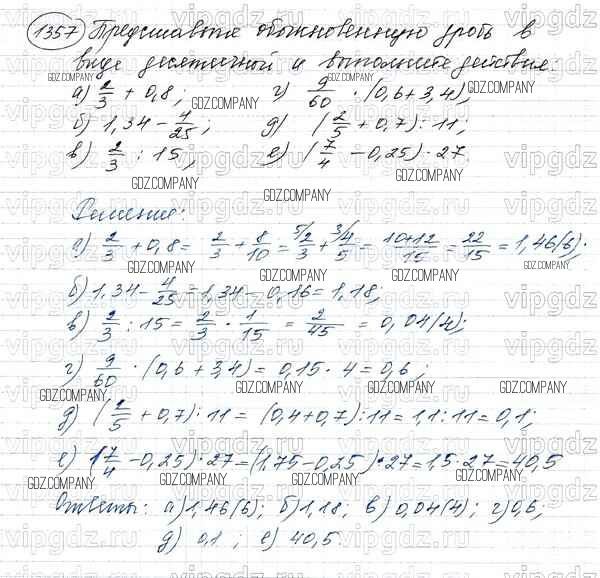 1357 Представьте обыкновенную дробь в
виде десятичной и выполните действия:
а) 2/3 + 0,8; г) 9/60 · (0,6 + 3,4);
б) 1,34 - 4/25; д) (2/5 + 0,7) : 11;
в) 2/3 : 15; е) (7/4 - 0,25) · 27
Решение:
а) 2/3 + 0,8 = 2/3 + 8/10 = 5/2/3 + 3/4/5 = 10+12/15 = 22/15 = 1,46(6);
б) 1,34 - 4/25 = 1,34 - 0,16 = 1,18;
в) 2/3 : 15 = 2/3 · 1/15 = 2/45 = 0,04(4);
г) 9/60 · (0,6 + 3,4) = 0,15 · 4 = 0,6;
д) (2/5 + 0,7) : 11 = (0,4 + 0,7) : 11 = 1,1 : 11 = 0,1;
е) (7/4 - 0,25) · 27 = (1,75 - 0,25) · 27 = 1,5 · 27 = 40,5
Ответы: а) 1,46(6); б) 1,18; в) 0,04(4); г) 0,6;
д) 0,1; е) 40,5.
GDZ.COMPANY
vipgdz.ru